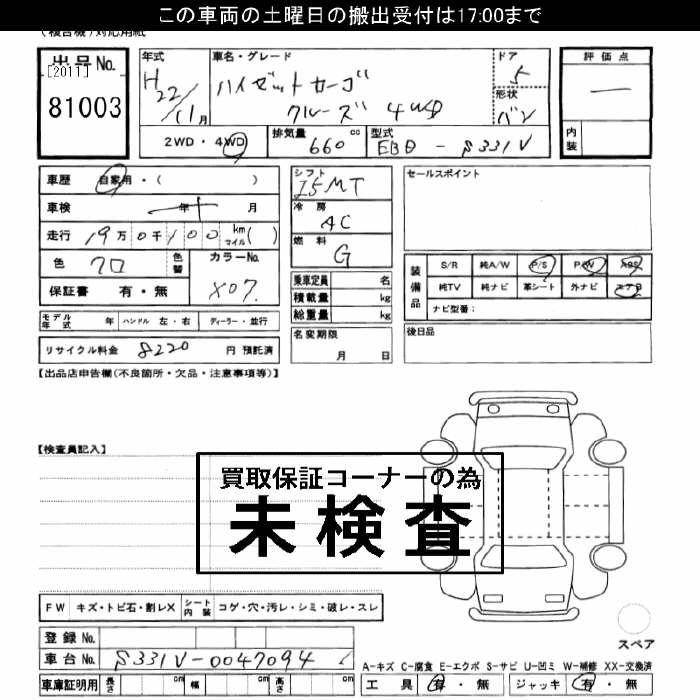 この車両の土曜日の搬出受付は17:00まで
(複合機)対応用紙
出品No.
[2011]
81003
年式
H22/11月
車名・グレード
ハイゼットカーゴ
クルーズ 4WD
ドア
5
形状
バン
評価点
—
内装
2WD・4WD
排気量
660 cc
型式
EBD - S331V
車歴 自家用・( )
車検 年 月
走行 19万0千100 km マイル( )
色 クロ 色替
カラーNo.
X07
保証書 有・無
シフト
I5MT
冷房
AC
燃料
G
乗車定員 名
積載量 kg
総重量 kg
セールスポイント
装備品
S/R 純A/W P/S P/W ABS
純TV 純ナビ 革シート 外ナビ エアB
ナビ型番:
モデル年式 年 ハンドル 左・右 ディーラー・並行
リサイクル料金 8220 円 預託済
名変期限
月 日
後日品
【出品店申告欄(不良箇所・欠品・注意事項等)】
【検査員記入】
買取保証コーナーの為
未検査
FW キズ・トビ石・割レX シート内装 コゲ・穴・汚レ・シミ・破レ・スレ
スペア
登録No.
車台No. S331V-0047094
A-キズ C-腐食 E-エクボ S-サビ U-凹ミ W-補修 XX-交換済
車庫証明用 長さ cm 幅 cm 高さ cm
工具 有・無 ジャッキ 有・無